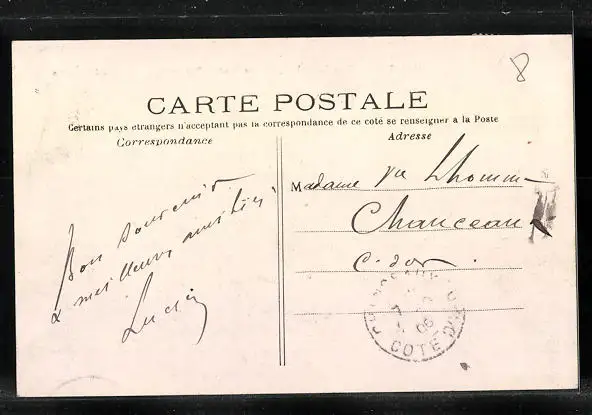 8
CARTE POSTALE
Certains pays étrangers n'acceptant pas la correspondance de ce coté se renseigner à la Poste
Correspondance
Adresse
Bon souvenir
& meilleures amitiés
Lucien
Madame Vve Lhomme
Chanceaux
C. d'or.
COTE D'OR